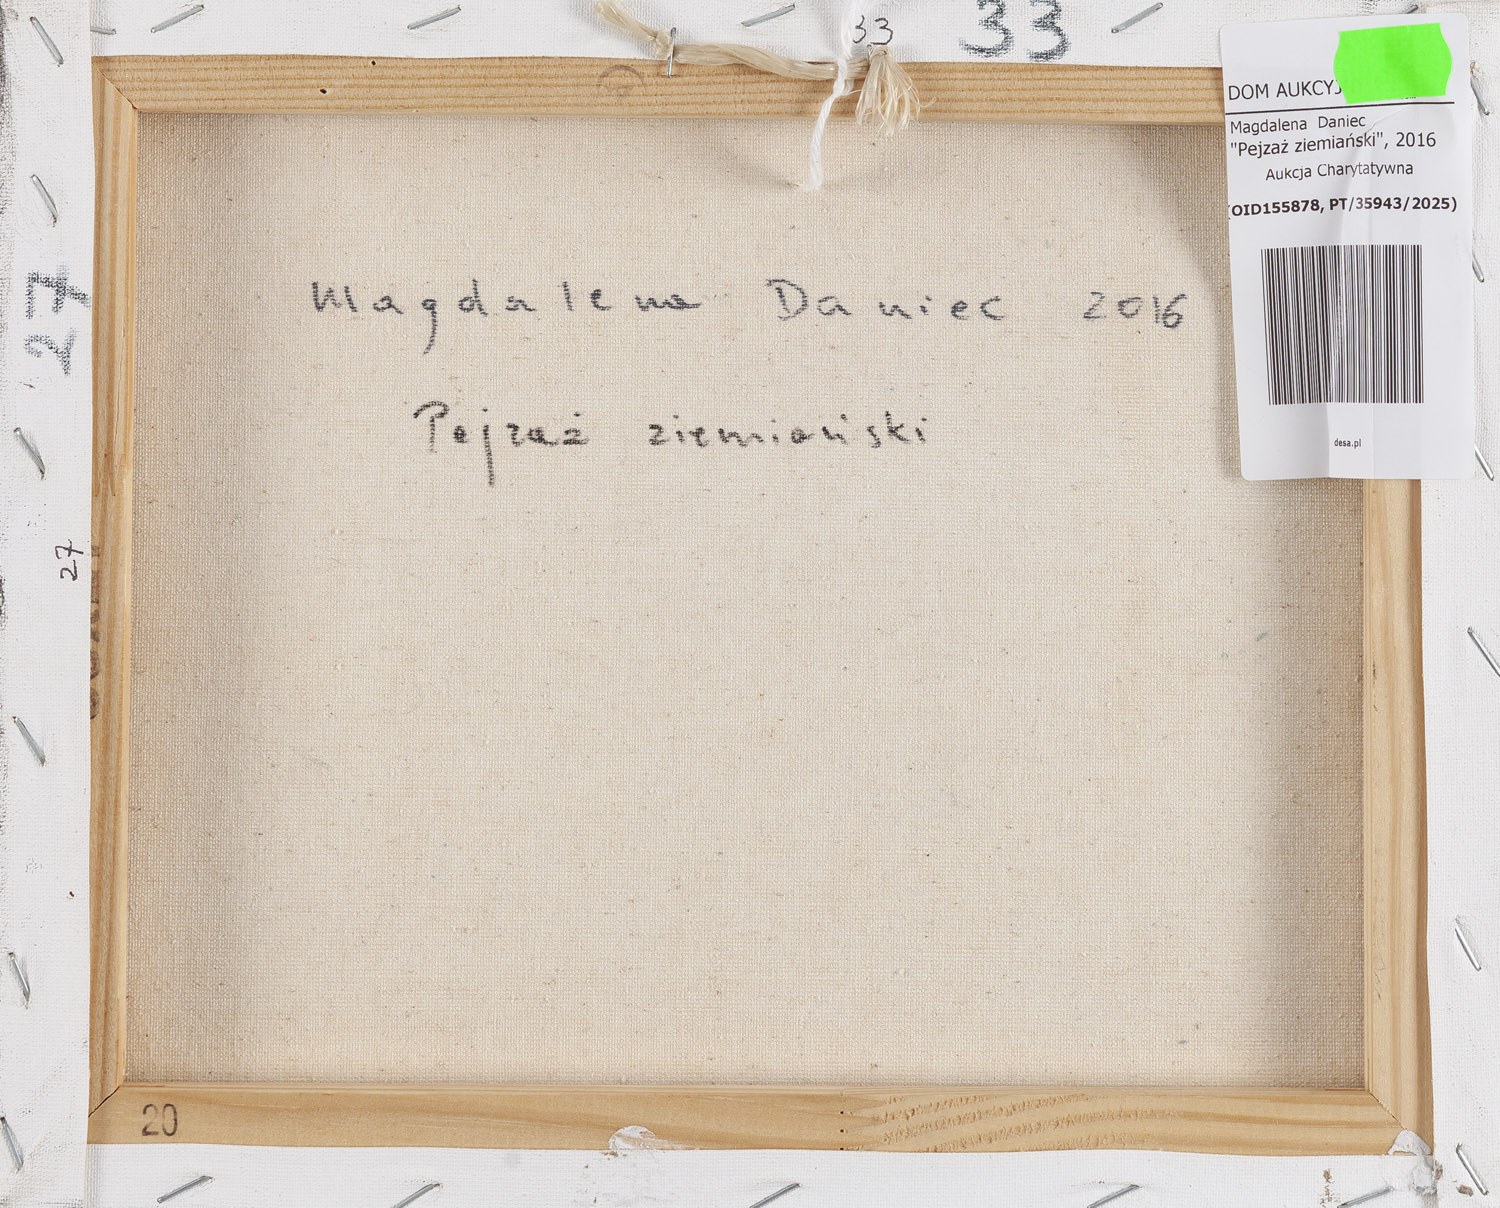 33
33
DOM AUKCYJ
Magdalena Daniec
"Pejzaż ziemiański", 2016
Aukcja Charytatywna
(OID155878, PT/35943/2025)
desa.pl
27
Magdalena Daniec 2016
Pejzaż ziemiański
27
20